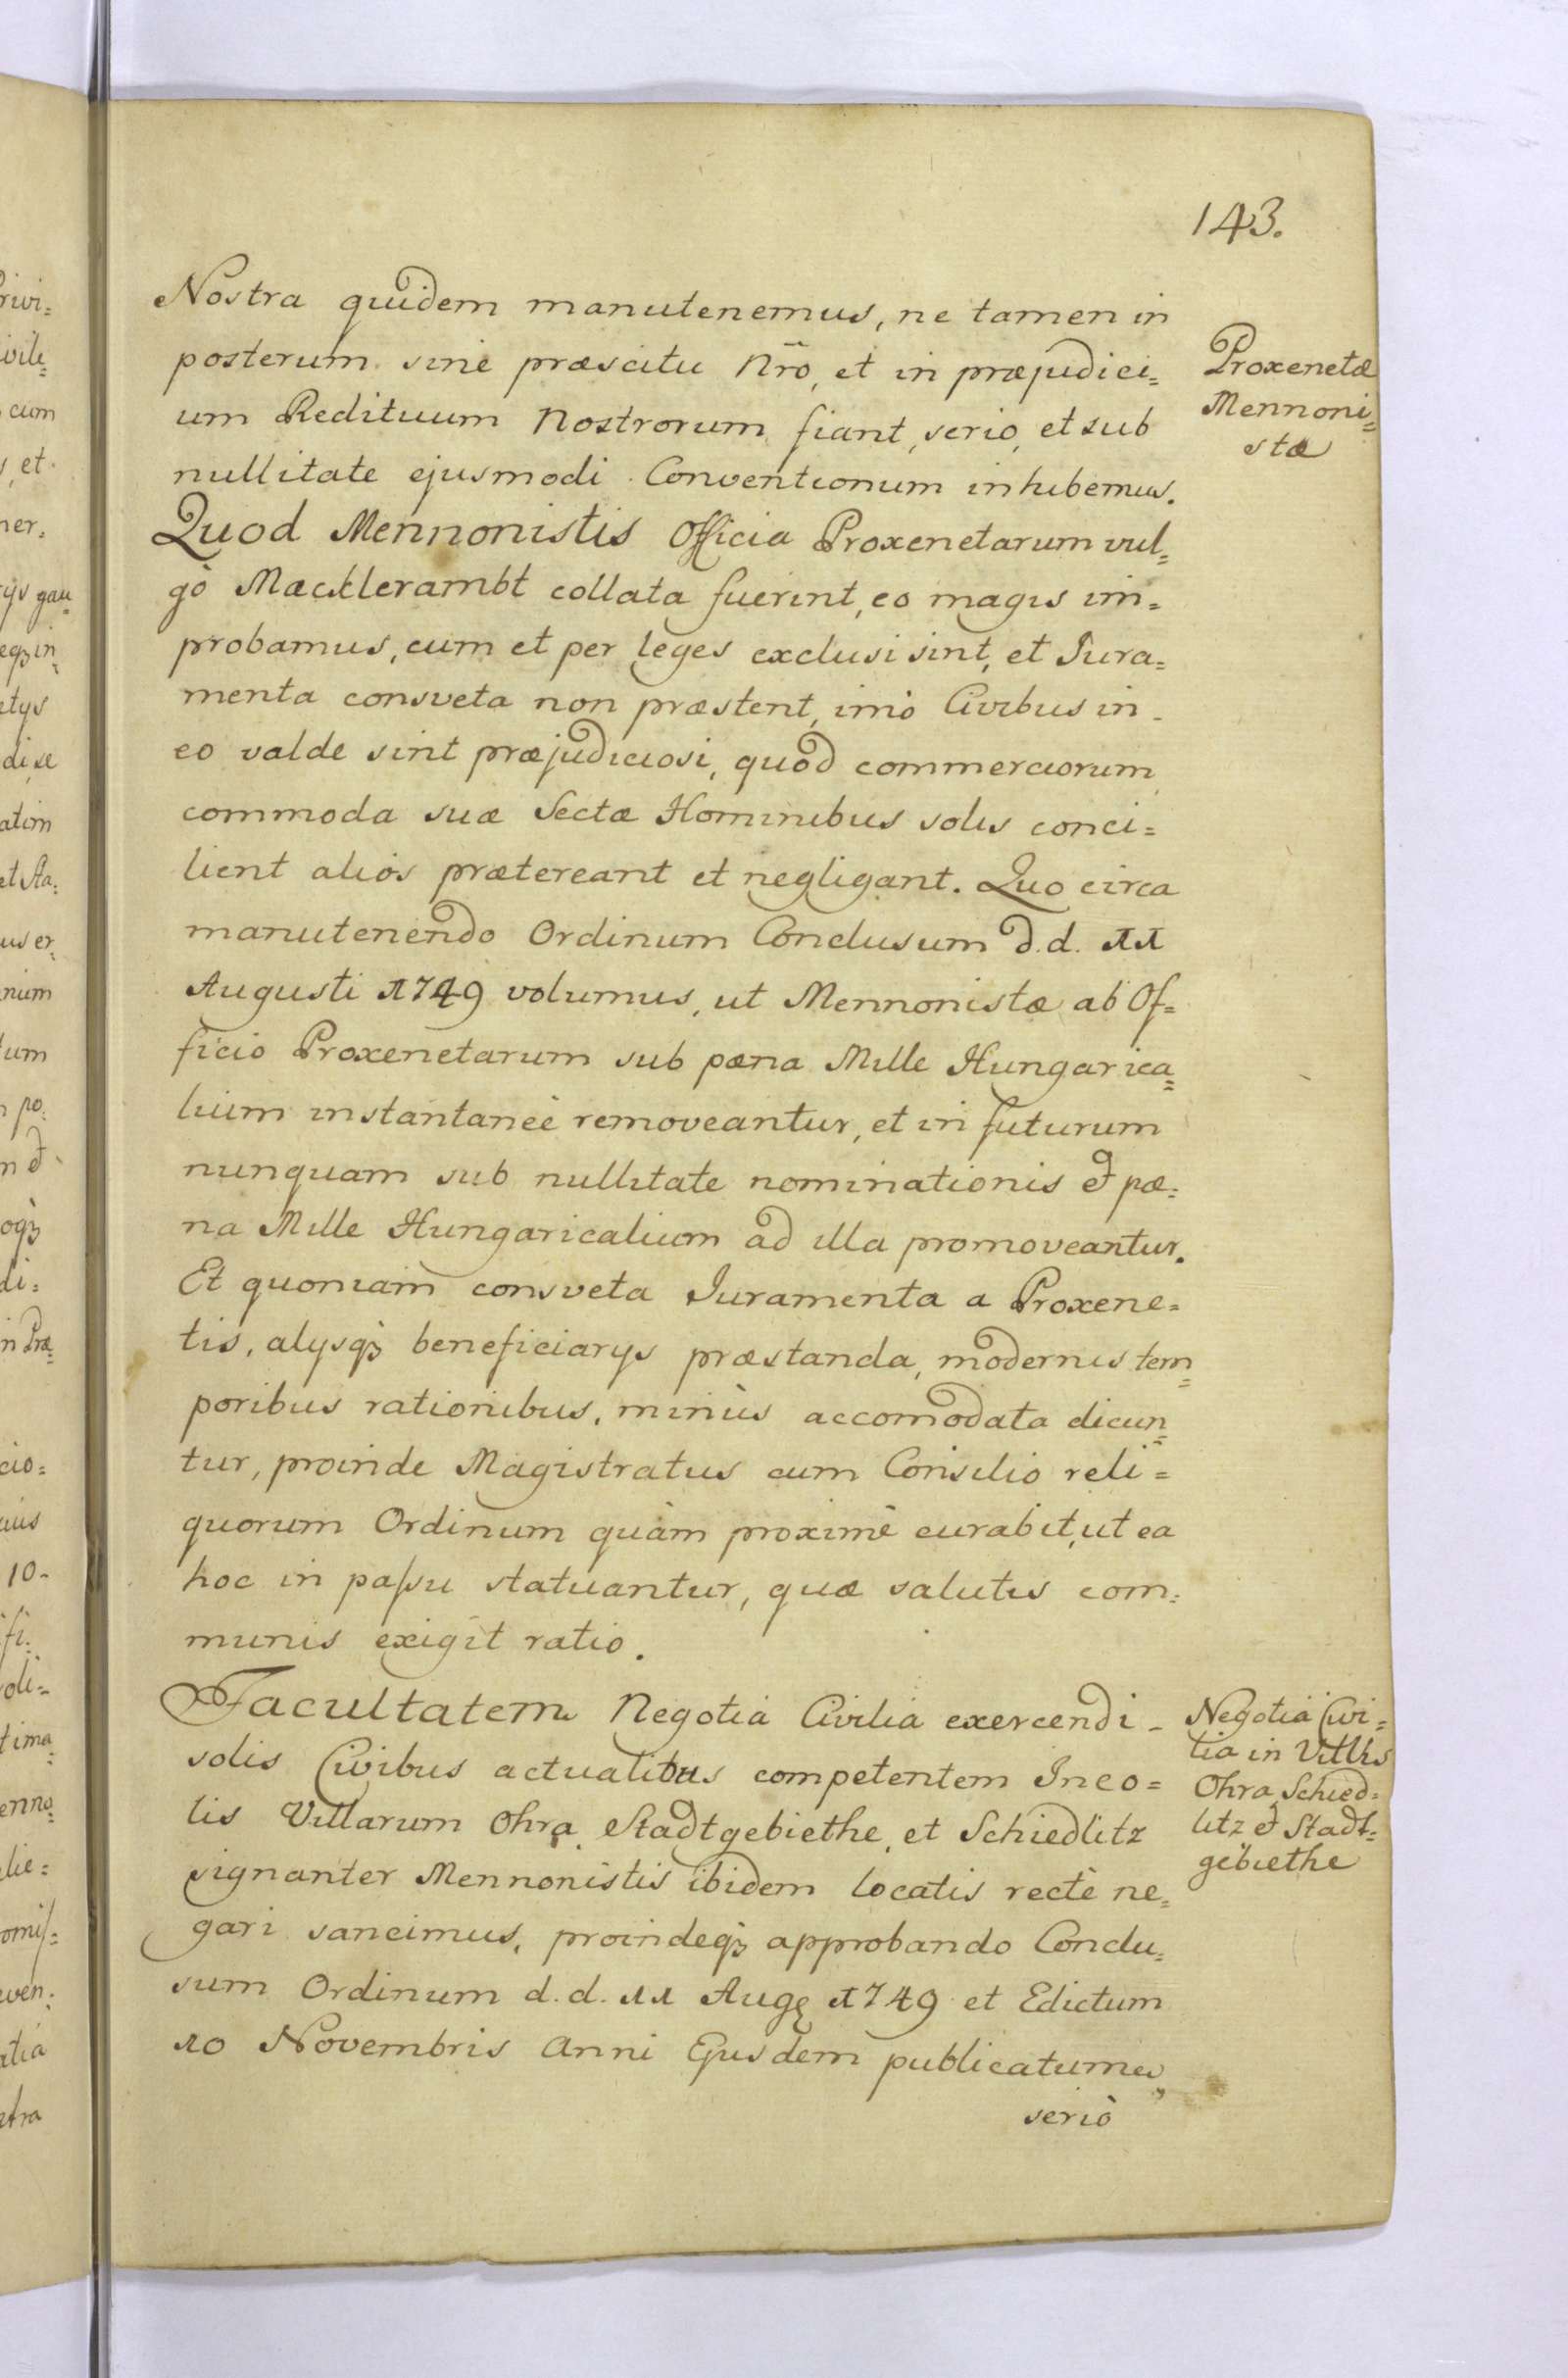 143.
Nostra quidem manutenemus, ne tamen in
posterum sine præscitu Nr̃o, et in præjudici=
um Redituum Nostrorum fiant, serio, et sub
nullitate ejusmodi Conventionum inhibemus.
Proxenetæ
Mennoni=
stæ
Quod Mennonistis Officia Proxenetarum vul=
gò Macklerambt collata fuerint, eo magis im=
probamus, cum et per leges exclusi sint, et Jura=
menta consveta non præstent, imò Civibus in
eo valde sint præjudiciosi, quod commerciorum
commoda suæ Sectæ Hominibus solis conci=
lient aliòs prætereant et negligant. Quo circa
manutenendo Ordinum Conclusum d.d. 11
Augusti 1749 volumus, ut Mennonistæ ab Of=
ficio Proxenetarum sub pæna Mille Hungarica=
lium instantaneè removeantur, et in futurum
nunquam sub nullitate nominationis et pæ=
na Mille Hungaricalium ad illa promoveantur.
Et quoniam consveta Juramenta a Proxene=
tis, alysqꝫ beneficiarys præstanda, modernis tem=
poribus rationibus, minùs accomodata dicun=
tur, proinde Magistratus cum Consilio reli=
quorum Ordinum quàm proximè curabit, ut ea
hoc in passu statuantur, quæ salutis com=
munis exigit ratio.
Facultatem Negotia Civilia exercendi
solis Civibus actualibus competentem Inco=
lis Villarum Ohra, Stadtgebiethe, et Schiedlitz
signanter Mennonistis ibidem locatis rectè ne=
gari sancimus, proindeqꝫ approbando Conclu=
sum Ordinum d.d. 11 Augę 1749 et Edictum
10 Novembris Anni Ejusdem publicatum
seriò
Negotia Civi=
lia in Villis
Ohra, Schied=
litz et Stadt=
gebiethe